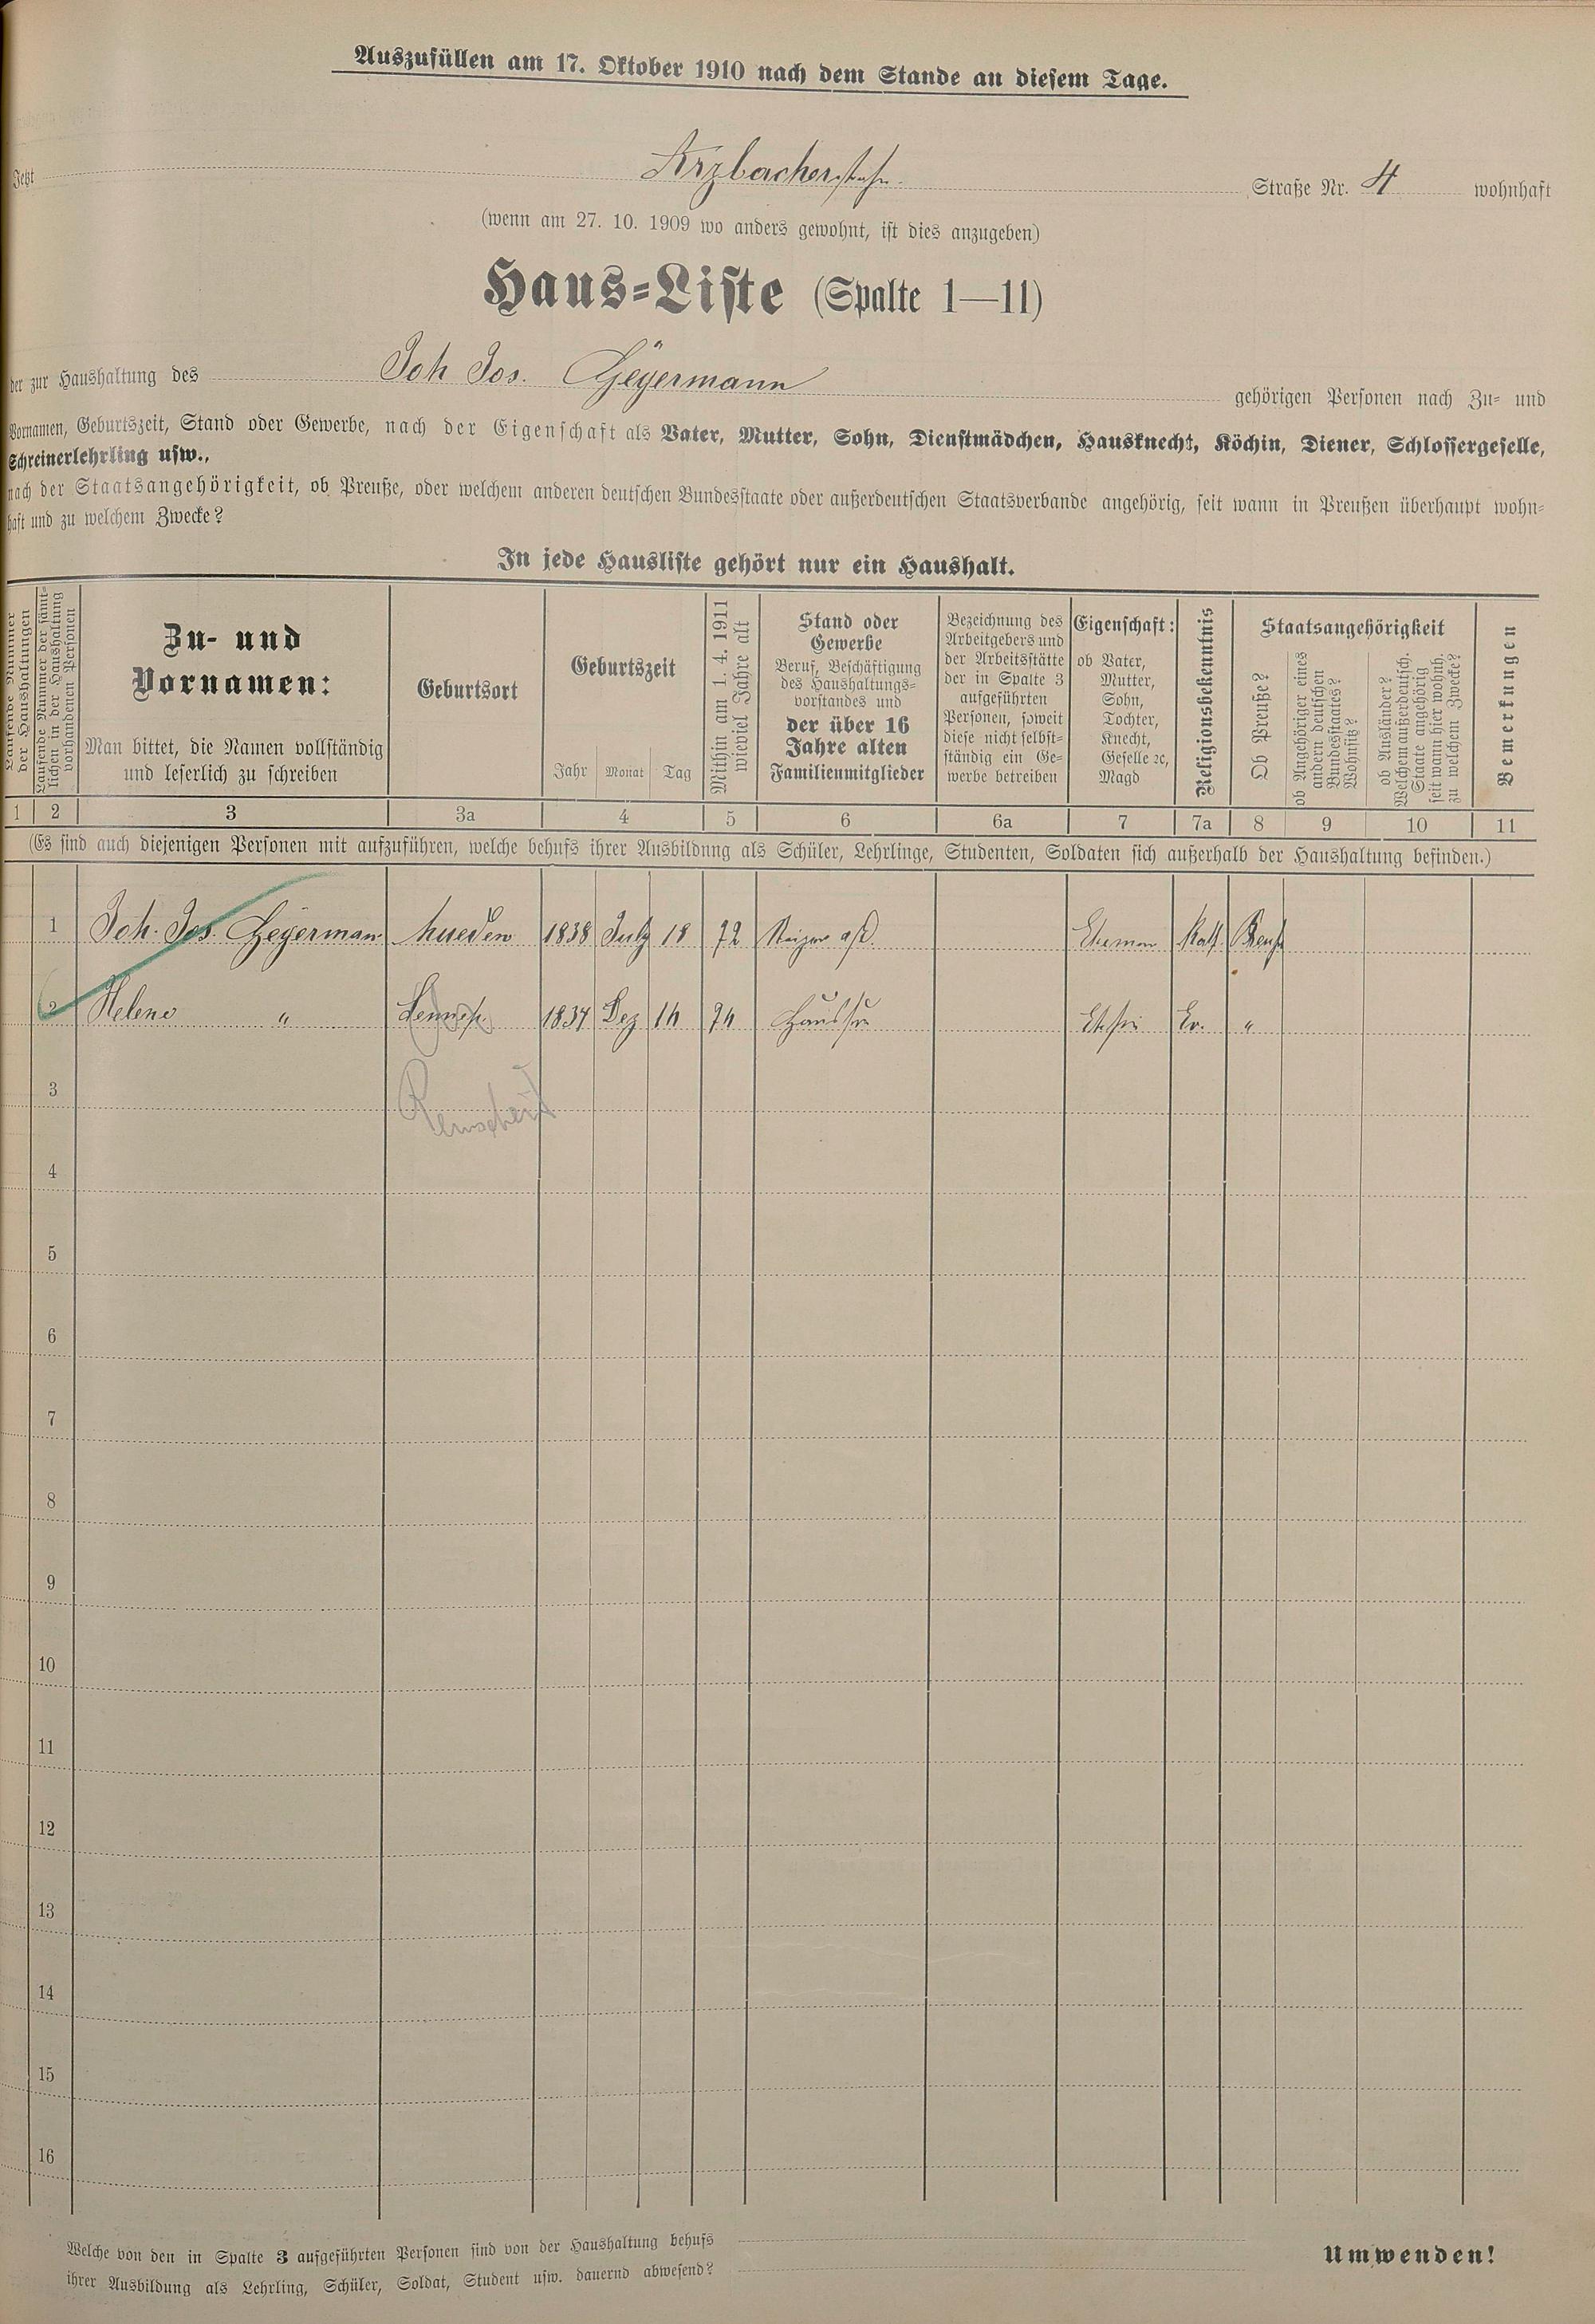 Auszufüllen am 17. Oktober 1910 nach dem Stande an diesem Tage.
Jetzt Arzbacherstraße Straße Nr. 4 wohnhaft
(wenn am 27. 10. 1909 wo anders gewohnt, ist dies anzugeben)
Haus-Liste (Spalte 1—11)
der zur Haushaltung des Joh Jos. Geyermann gehörigen Personen nach Zu- und
Vornamen, Geburtszeit, Stand oder Gewerbe, nach der Eigenschaft als Vater, Mutter, Sohn, Dienstmädchen, Hausknecht, Köchin, Diener, Schlossergeselle,
Schreinerlehrling usw.,
nach der Staatsangehörigkeit, ob Preuße, oder welchem anderen deutschen Bundesstaate oder außerdeutschen Staatsverbande angehörig, seit wann in Preußen überhaupt wohn-
haft und zu welchem Zwecke?
In jede Hausliste gehört nur ein Haushalt.
Laufende Nummer
der Haushaltungen
Laufende Nummer der sämt-
lichen in der Haushaltung
vorhandenen Personen
Zu- und
Vornamen:
Man bittet, die Namen vollständig
und leserlich zu schreiben
Geburtsort
Geburtszeit
Jahr Monat Tag
Mithin am 1. 4. 1911
wieviel Jahre alt
Stand oder
Gewerbe
Beruf, Beschäftigung
des Haushaltungs-
vorstandes und
der über 16
Jahre alten
Familienmitglieder
Bezeichnung des
Arbeitgebers und
der Arbeitsstätte
der in Spalte 3
aufgeführten
Personen, soweit
diese nicht selbst-
ständig ein Ge-
werbe betreiben
Eigenschaft:
ob Vater,
Mutter,
Sohn,
Tochter,
Knecht,
Geselle ꝛc,
Magd
Religionsbekenntnis
Staatsangehörigkeit
Ob Preuße?
ob Angehöriger eines
andern deutschen
Bundesstaates?
Wohnsitz?
ob Ausländer?
Welchem außerdeutsch.
Staate angehörig
seit wann hier wohnh.
zu welchem Zwecke?
Bemerkungen
1 2 3 3a 4 5 6 6a 7 7a 8 9 10 11
(Es sind auch diejenigen Personen mit aufzuführen, welche behufs ihrer Ausbildung als Schüler, Lehrlinge, Studenten, Soldaten sich außerhalb der Haushaltung befinden.)
1 Joh. Jos. Geyerman Mueden 1838 July 18 72 Eheman Kath. Preuße
2 Helene " Lennep. 1834 Dez 14 74 Hausfr Ehefrau Ev. "
Remscheid
3
4
5
6
7
8
9
10
11
12
13
14
15
16
Welche von den in Spalte 3 aufgeführten Personen sind von der Haushaltung behufs
ihrer Ausbildung als Lehrling, Schüler, Soldat, Student usw. dauernd abwesend?
Umwenden!